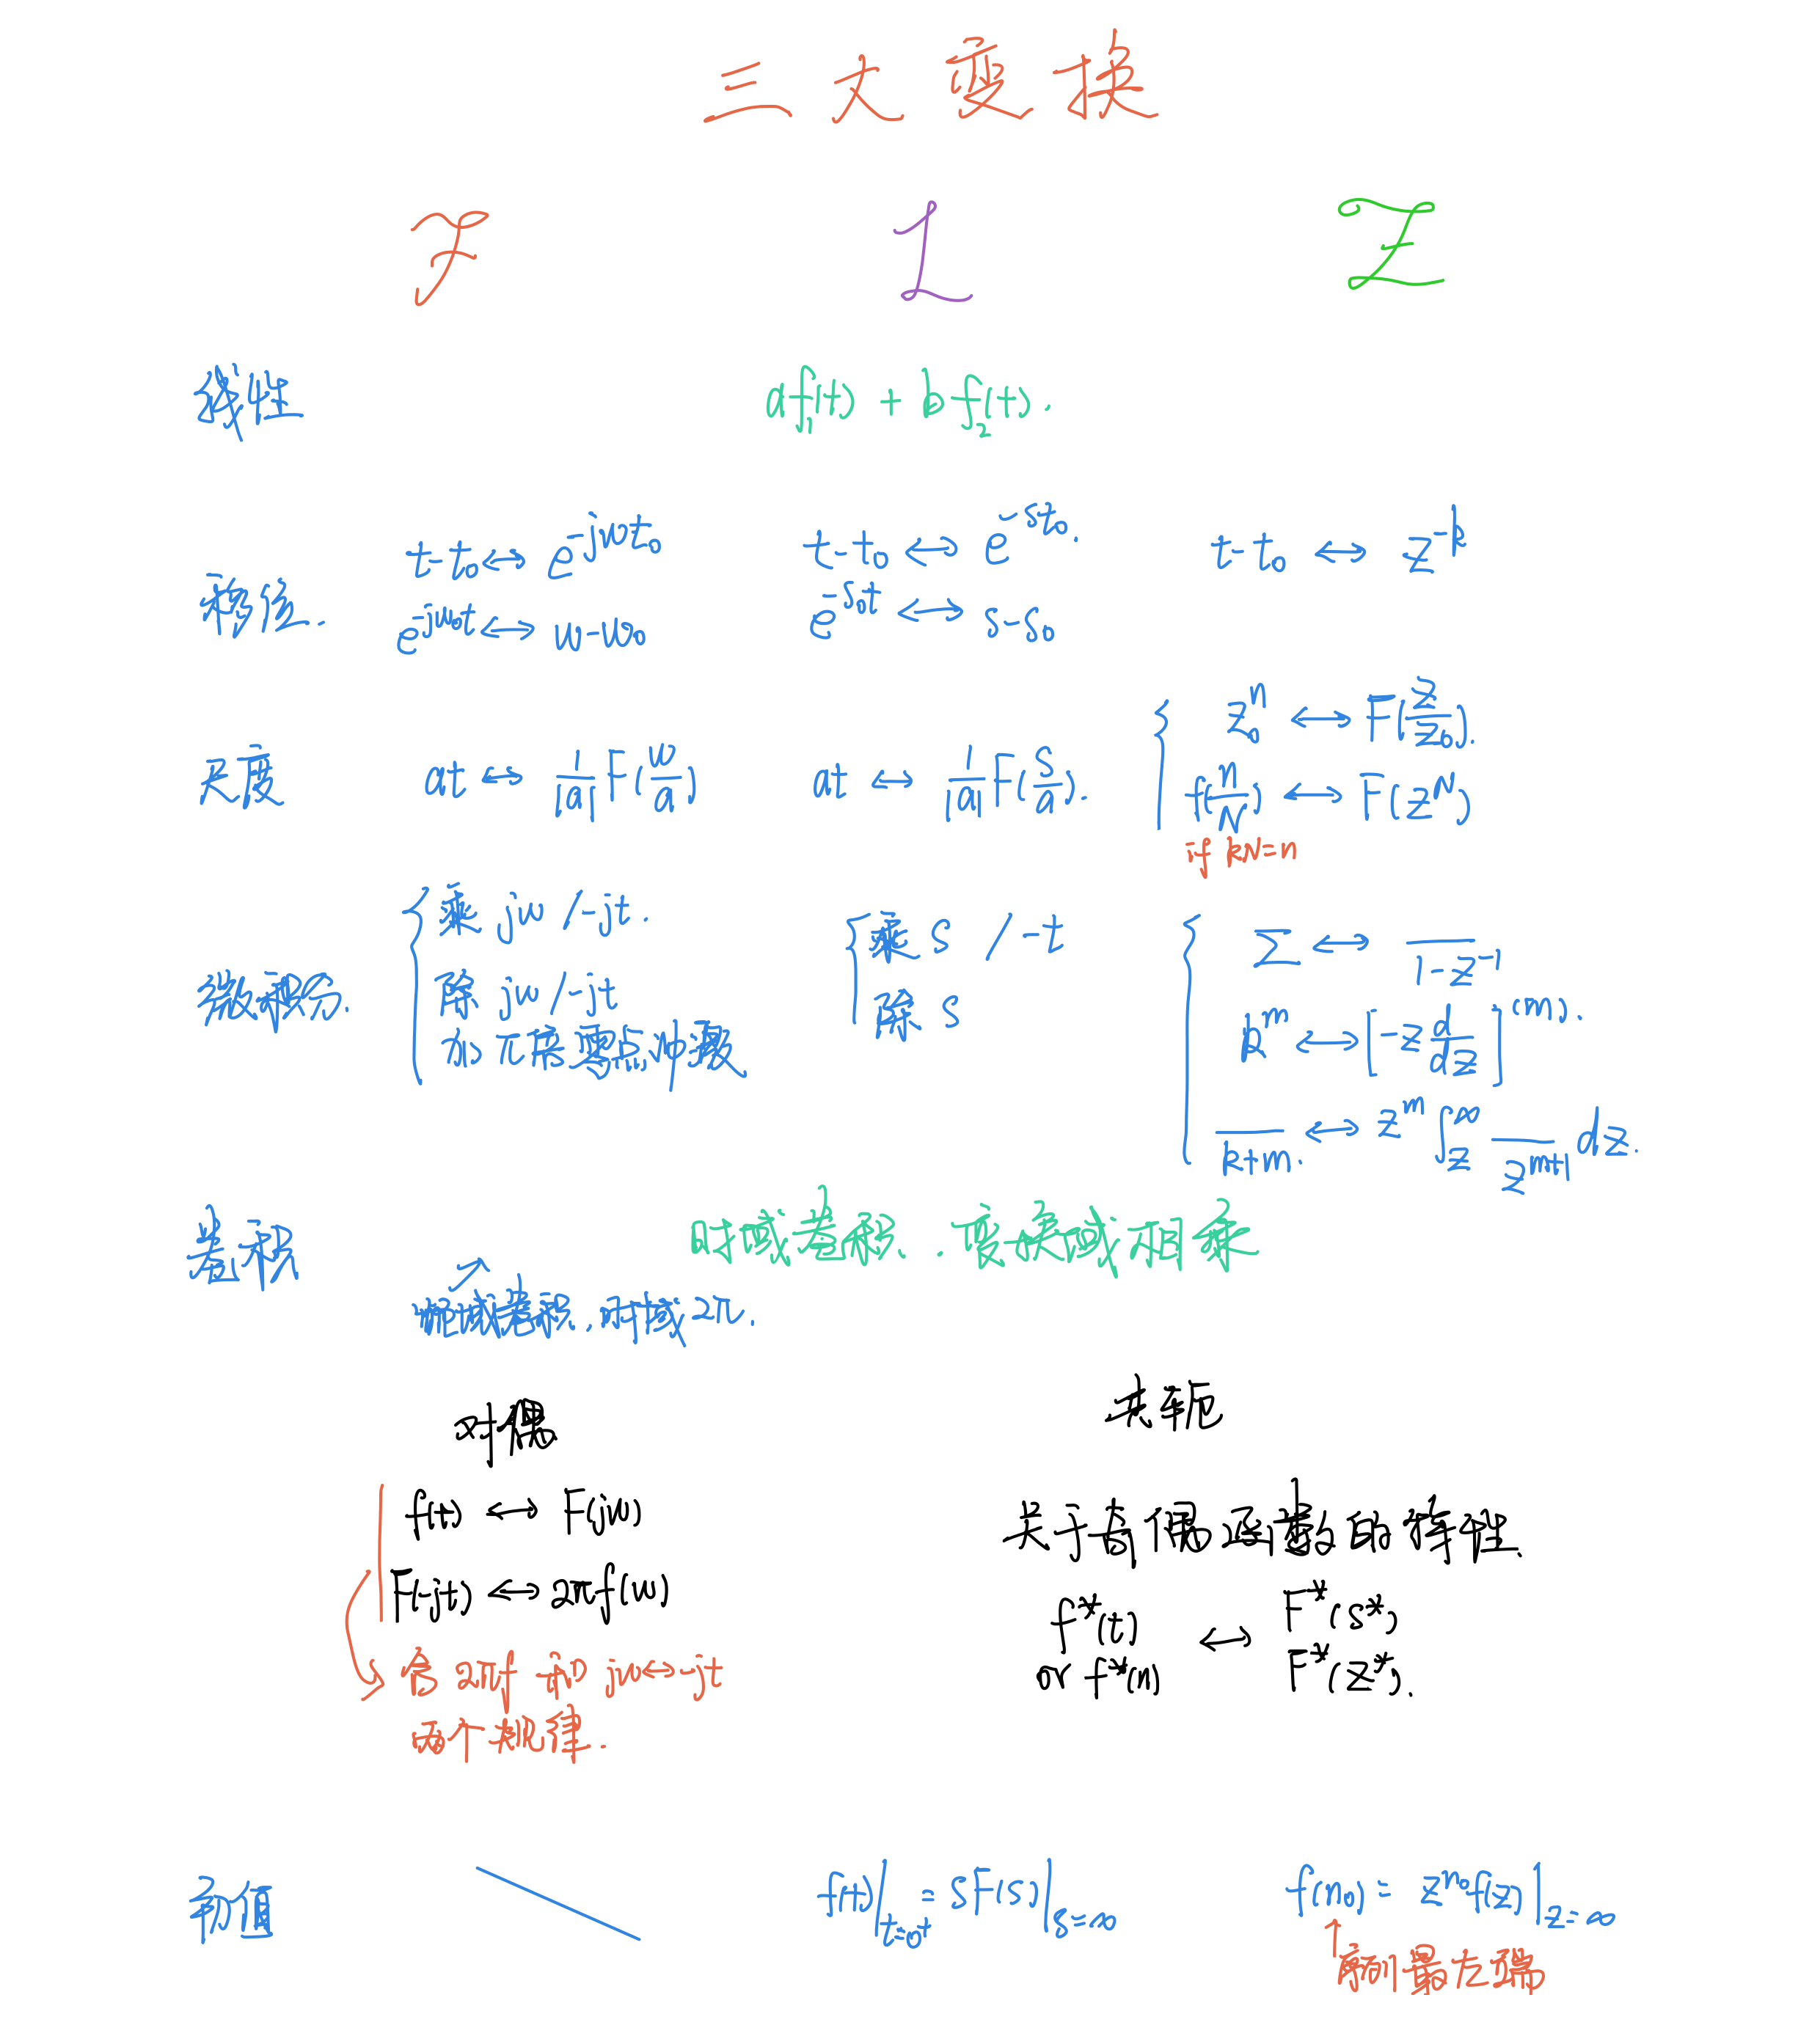 三大变换
F L Z
线性 af₁(t) + bf₂(t).
t-t₀ ↔ e^{-jωt₀} t-t₀ ↔ e^{-st₀}. t-t₀ ↔ z^{-k}
移位.
e^{-jω₀t} ↔ ω-ω₀ e^{-s₀t} ↔ s-s₀
尺度 at ↔ 1/|a| F(ω/a) at ↔ 1/|a| F(s/a).
z₀ⁿ ↔ F(z/z₀).
f(n/N) ↔ F(z^N)
if kN=n
微积分.
乘 jω /-jt.
除 jω /-jt
加 π倍零点冲激
乘 s / -t
除 s
Σ ↔ —/(1-z⁻¹)
k^m ↔ [-z d/dz]^{(m)}.
—/(k+m). ↔ z^m ∫_z^∞ —/z^{m+1} dz.
卷积 时域卷积.变换域相乘
频域卷积.时域2π.
对偶
f(t) ↔ F(jω)
F(-jt) ↔ 2πf(ω)
含 2πf 和 jω↔-jt
两个规律.
共轭
关于奇偶函数的特性.
f*(t) ↔ F*(s*)
or f*(n) F*(z*).
初值 f(t)|_{t=0⁺} = sF(s)|_{s=∞} f(n₀) = z^{n₀}f(z)|_{z=∞}
序列最左端